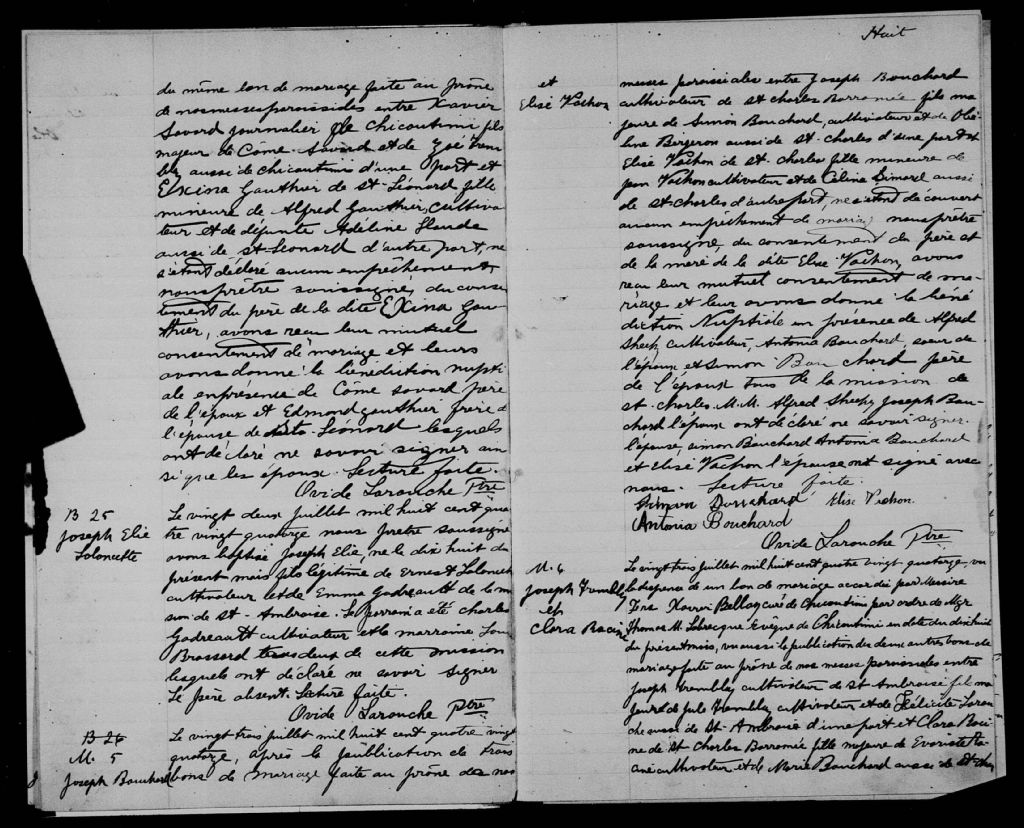 du même ban de mariage faite au prône
de nos messes paroissiales entre Xavier
Savard journalier de Chicoutimi fils
majeur de Côme Savard et de Zoé Trem
blay aussi de chicoutimi d'une part et
Exina Gauthier de St-Léonard fille
mineure de Alfred Gauthier, cultiva
teur et de défunte Adéline
aussi de St-Léonard d'autre part, ne
s'étant déclaré aucun empêchement,
nous prêtre soussigné, du conse
tement du père de la dite Exina Gau
thier, avons reçu leur mutuel
consentement de mariage et leurs
avons donné la bénédiction nupti
ale en présence de Côme Savard père
de l'époux et Edmond Gauthier frère d
l'épouse de Léonard lesquels
ont déclaré ne savoir signer ain
si que les époux. Lecture faite.
Ovide Larouche Ptre
B 25
Joseph Elie
Laloncette
Le vingt deux juillet mil huit cent qua
tre vingt quatorze nous prêtre soussigné
avons baptisé Joseph Elie né le dix huit du
présent mois fils légitime de Ernest
cultivateur et de Emma Godreault de la mis
sion de St-Ambroise. Le parrain a été Charles
Godreault cultivateur et la marraine
Brassard tous deux de cette mission
lesquels ont déclaré ne savoir signer
Le père absent. Lecture faite.
Ovide Larouche Ptre
B 26
M. 5
Joseph Bouchard
Le vingt trois juillet mil huit cent quatre vingt
quatorze, après la publication de trois
bans de mariage faite au prône de nos
Huit
et
Elise Vachon
messes paroissiales entre Joseph Bouchard
cultivateur de St Charles Borromée fils ma
jeure de Simon Bouchard, cultivateur et de Obé
line Bergeron aussi de St-Charles d'une part et
Elise Vachon de St-Charles fille mineure de
Jean Vachon cultivateur et de Céline Simard aussi
de St-Charles d'autre part, ne s'étant découvert
aucun empêchement de mariage nous prêtre
soussigné, du consentement du père et
de la mère de la dite Elise Vachon, avons
reçu leur mutuel consentement de ma-
riage et leur avons donné la béné
diction Nuptiale en présence de Alfred
Sheep, cultivateur, Antonia Bouchard, soeur de
l'époux et Simon Bouchard père
de l'époux tous de la mission de
St-Charles. M.M. Alfred Sheep, Joseph Bou-
chard l'époux ont déclaré ne savoir signer.
l'épouse, Simon Bouchard Antonia Bouchard
et Elise Vachon l'épouse ont signé avec
nous. Lecture faite.
Simon Bouchard Elise Vachon.
Antonia Bouchard
Ovide Larouche Ptre
M. 6
Joseph Tremblay
et
Clara Racine
Le vingt trois juillet mil huit cent quatre vingt quatorze, vu
la dispense de un ban de mariage accordée par Messire
Frs Xavier Belley curé de Chicoutimi par ordre de Mgr
Thomas M. Labrecque Evêque de Chicoutimi en date du dix huit
du présent mois, vu aussi la publication des deux autres bans de
mariage faite au prône de nos messes paroissiales entre
Joseph Tremblay cultivateur de St-Ambroise fils ma
jeur de Jule Tremblay cultivateur, et de Félicité Larou
che aussi de St-Ambroise d'une part et Clara Raci
ne de St-Charles Borromée fille majeure de Evariste Ra
cine cultivateur et de Marie Bouchard aussi de St Char